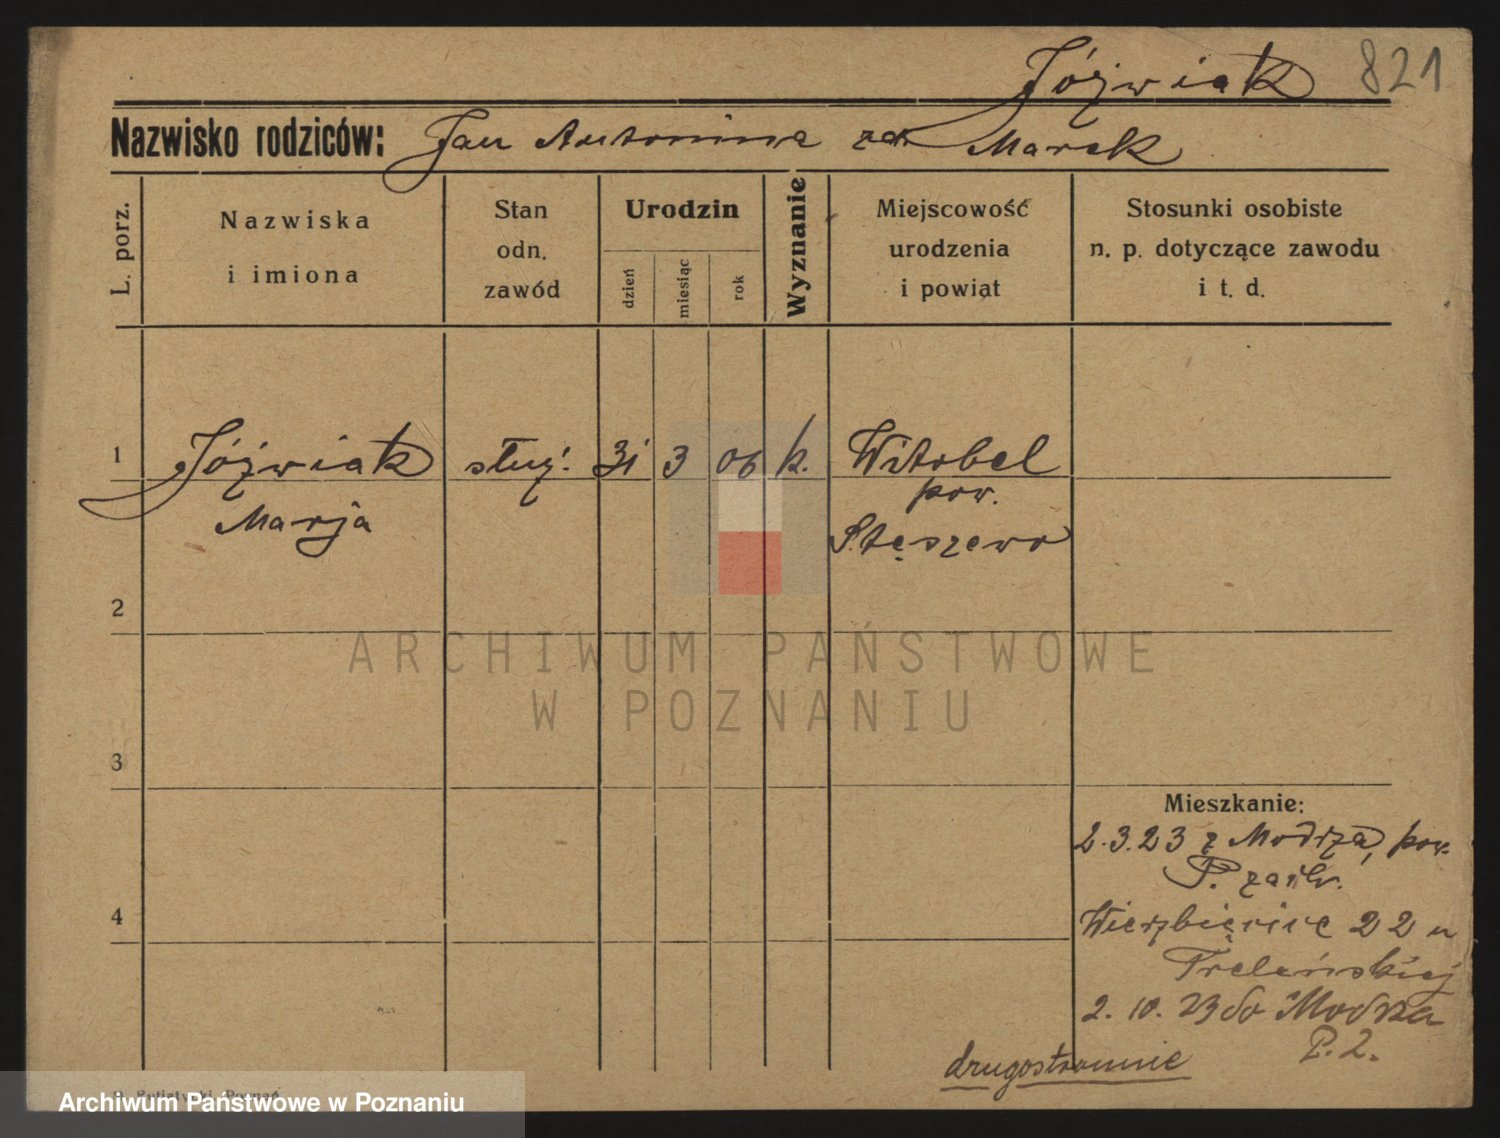 Jóźwiak 821
Nazwisko rodziców: Jan Antonina zd. Marek
L. porz.
Nazwiska
i imiona
Stan
odn.
zawód
Urodzin
dzień
miesiąc
rok
Wyznanie
Miejscowość
urodzenia
i powiat
Stosunki osobiste
n. p. dotyczące zawodu
i t. d.
1 Jóźwiak służ. 31 3 06 k. Witobel
pow.
Marja Stęszewo
2
ARCHIWUM PAŃSTWOWE
W POZNANIU
3
Mieszkanie:
2.3.23 z Modrza, pow.
P. zach.
4 Wierzbięcice 22 u
2. 10. 23 do Modrza
P. 2.
drugostronnie
Poznań
Archiwum Państwowe w Poznaniu